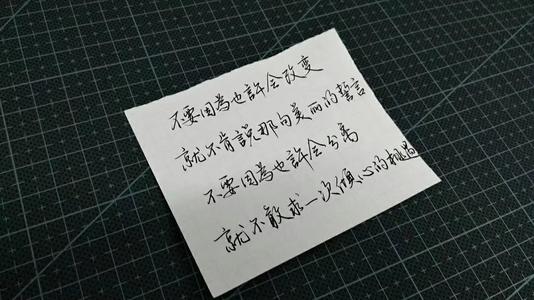 不要因為也許会改变
就不肯説那句美丽的誓言
不要因為也許会分离
就不敢求一次傾心的相遇